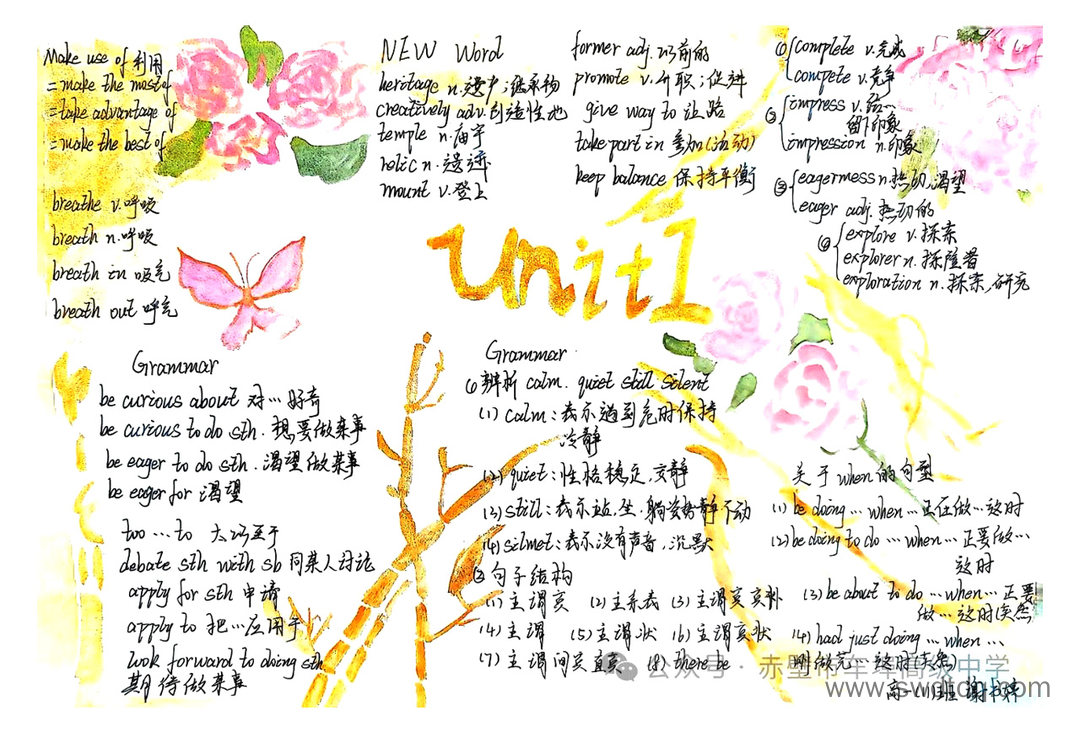 Make use of 利用
= make the most of
= take advantage of
= make the best of
breathe v.呼吸
breath n.呼吸
breath in 吸气
breath out 呼气
NEW Word
heritage n.遗产;继承物
creatively adv.创造性地
temple n.庙宇
relic n.遗迹
mount v.登上
former adj.以前的
promote v.升职;促进
give way to 让路
take part in 参加(活动)
keep balance 保持平衡
① complete v.完成
compete v.竞争
② impress v.给…
留下印象
impression n.印象
③ eagerness n.热切,渴望
eager adj.热切的
④ explore v.探索
explorer n.探险者
exploration n.探索,研究
unit1
Grammar
be curious about 对…好奇
be curious to do sth.想要做某事
be eager to do sth.渴望做某事
be eager for 渴望
too … to 太…以至于
debate sth with sb 同某人讨论
apply for sth 申请
apply to 把…应用于
look forward to doing sth
期待做某事
Grammar
① 辨析 calm. quiet still silent
(1) calm:表示遇到危时保持
冷静
(2) quiet:性格稳定,文静
(3) still:表示站.坐.躺姿势静不动
(4) silmet:表示没有声音,沉默
② 句子结构
(1) 主谓宾 (2) 主系表 (3) 主谓宾宾补
(4) 主谓 (5) 主谓状 (6) 主谓宾状
(7) 主谓间宾直宾 (8) there be
关于when的句型
(1) be doing … when … 正在做…这时
(2) be doing to do … when … 正要做…
这时
(3) be about to do … when … 正要
做…这时(突然)
(4) had just doing … when …
刚做完…这时(突然)
公众号 · 赤壁市车埠高级中学
高一(11)班